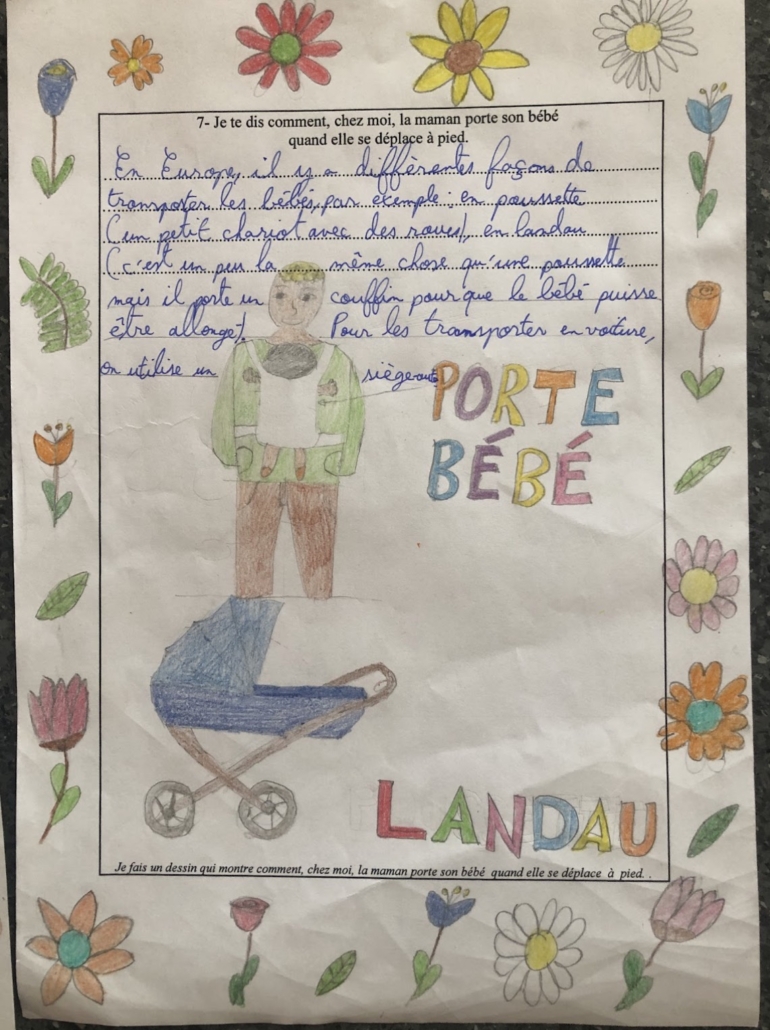 7- Je te dis comment, chez moi, la maman porte son bébé
quand elle se déplace à pied.
En Europe, il y a différentes façons de
transporter les bébés, par exemple : en poussette
(un petit chariot avec des roues), en landau
(c'est un peu la même chose qu'une poussette
mais il porte un couffin pour que le bébé puisse
être allongé). Pour les transporter en voiture,
on utilise un siège auto
PORTE
BÉBÉ
LANDAU
Je fais un dessin qui montre comment, chez moi, la maman porte son bébé quand elle se déplace à pied. .